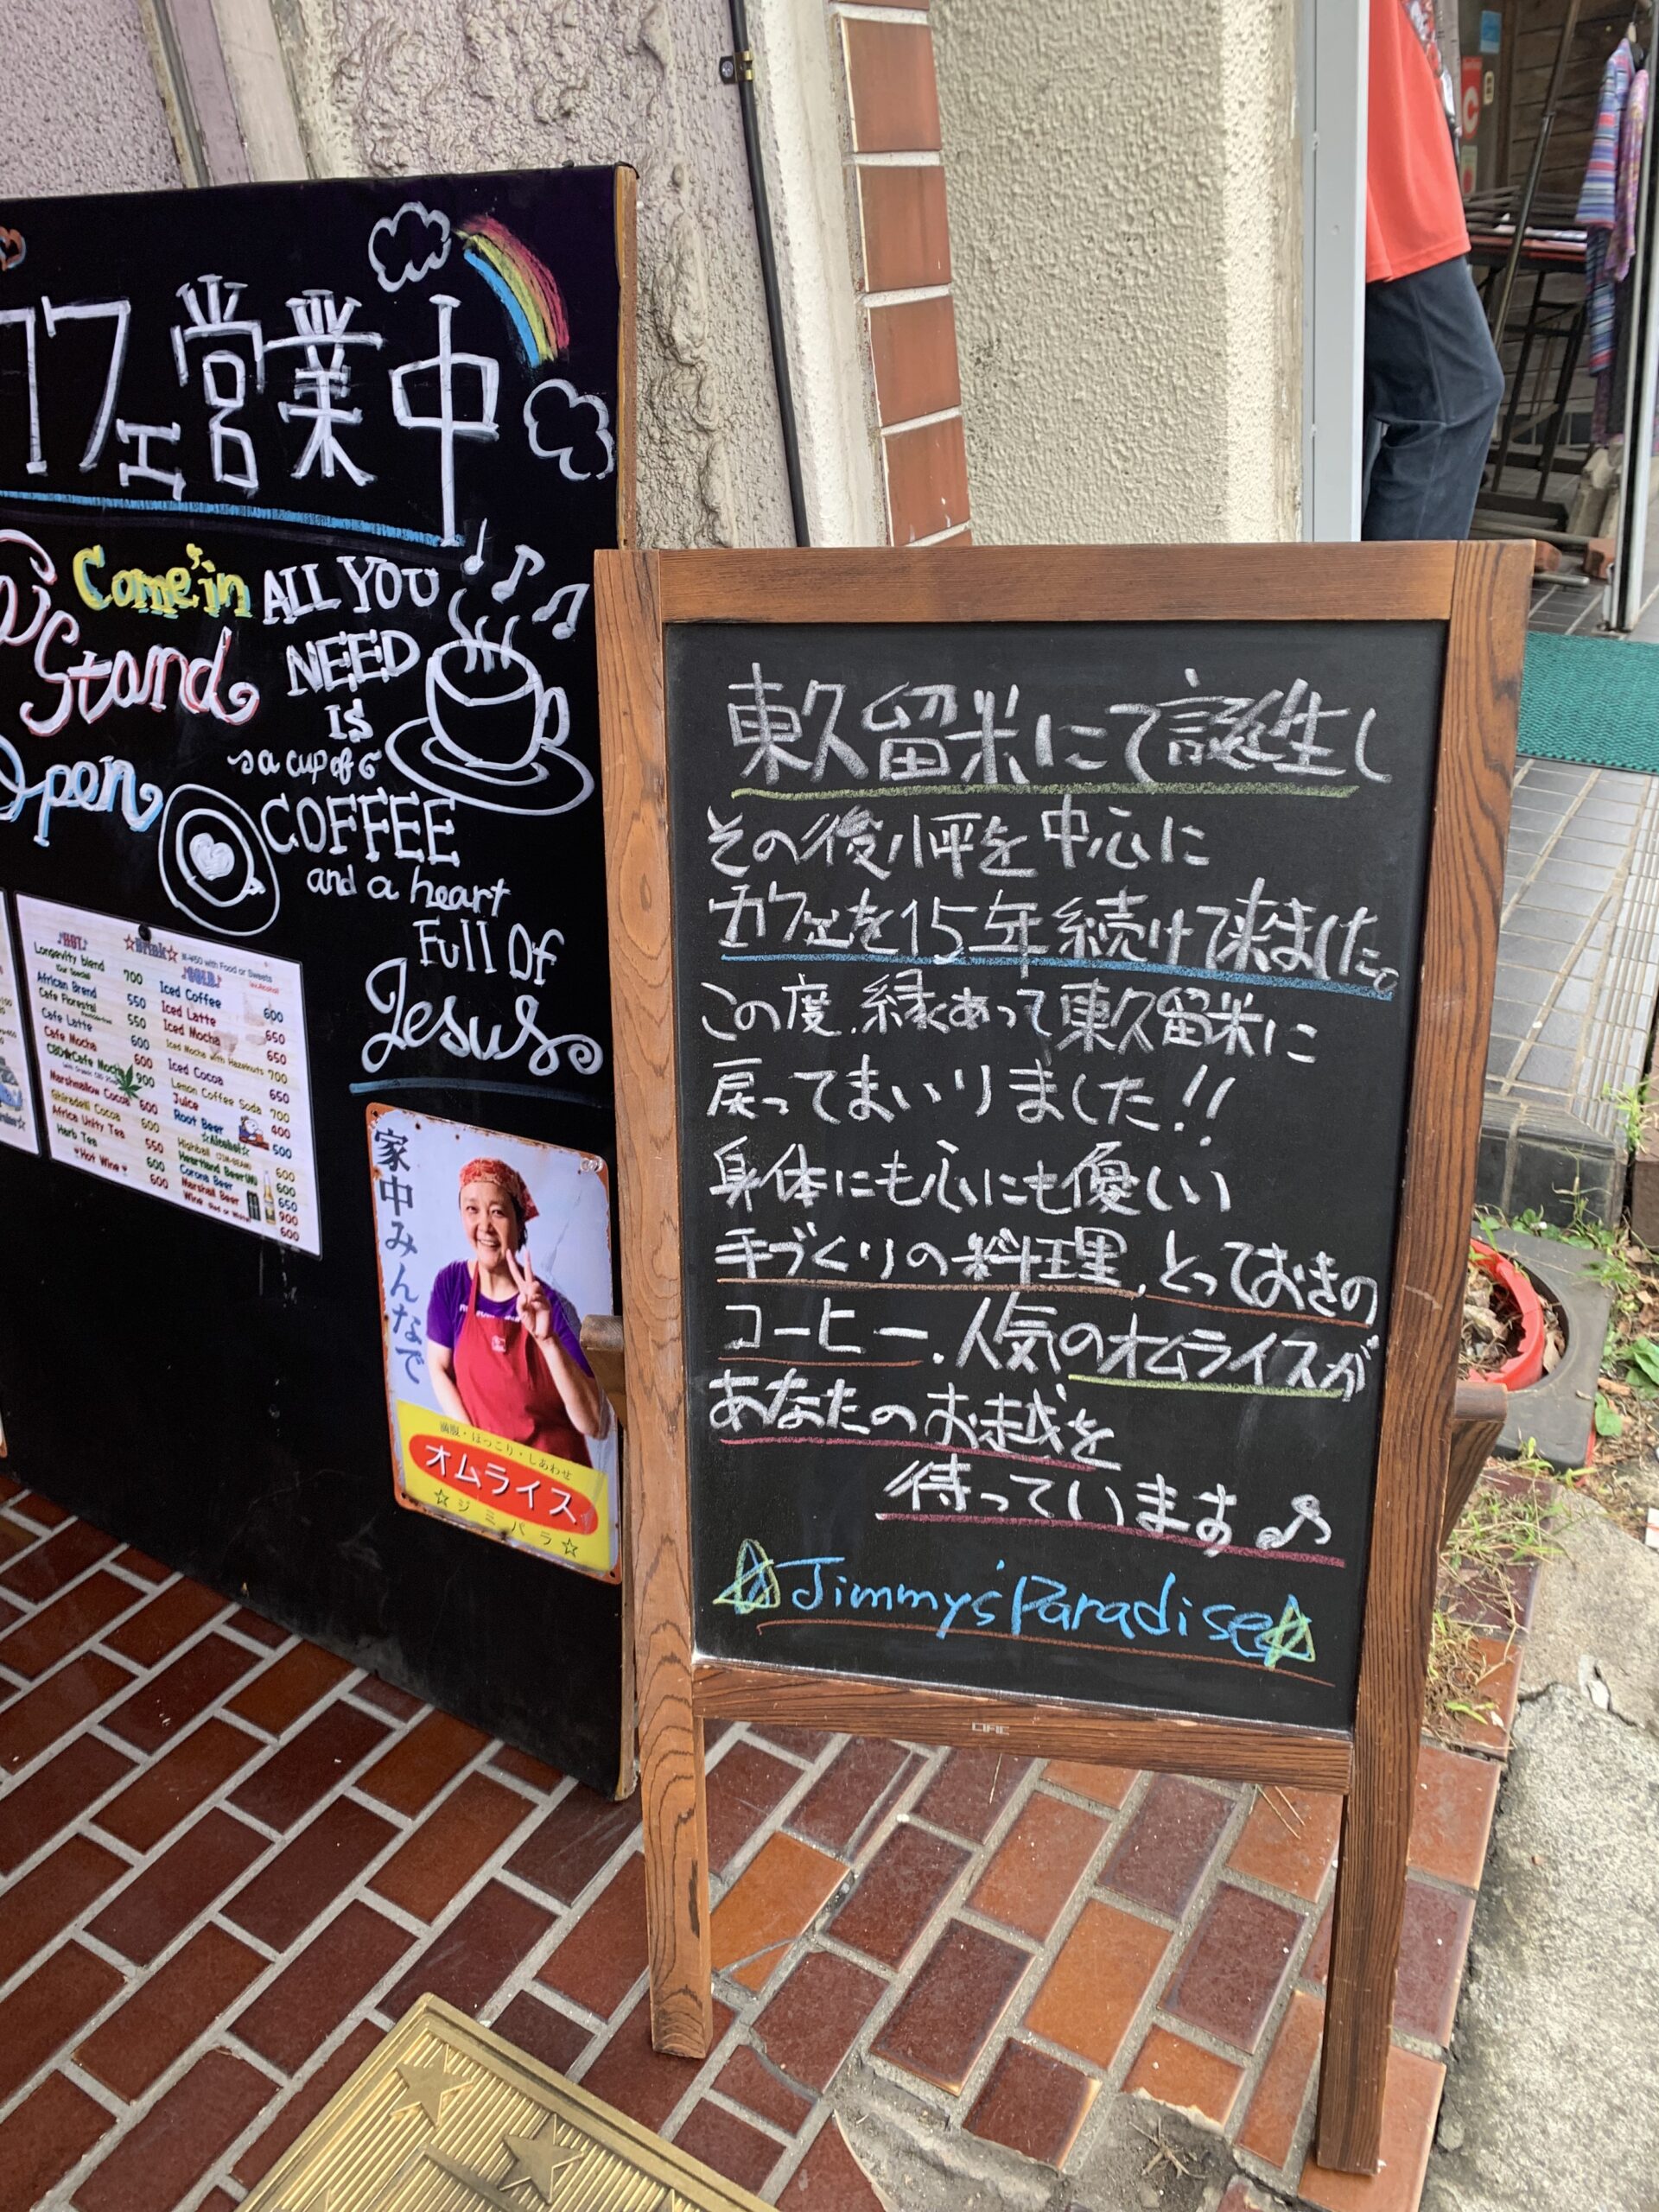 カフェ営業中
Come'in
Stand
Open
ALL YOU
NEED
IS
a cup of
COFFEE
and a heart
Full Of
Jesus
♪HOT♪
Longevity blend 700
African Brend 550
Cafe Florestal 550
Cafe Latte 600
Cafe Mocha 600
CBD Cafe Mocha 900
Marshmallow Cocoa 600
Ghiradelli Cocoa 600
Africa Unity Tea 550
Herb Tea 600
♥Hot Wine♥ 600
☆Drink☆ ¥-¥50 with Food or Sweets
♪COLD♪
Iced Coffee 600
Iced Latte 650
Iced Mocha 650
Iced Mocha with Hazelnuts 700
Iced Cocoa 650
Lemon Coffee Soda 700
Juice 400
Root Beer 500
☆Alcohol☆
Highball (JIM-BEAM) 600
Heartland Beer 600
Corona Beer 650
Marshall Beer 900
Wine (Red or White) 600
家中みんなで
満腹・ほっこり・しあわせ
オムライス
☆ジミパラ☆
東久留米にて誕生し
その後小平を中心に
カフェを15年続けて来ました。
この度、縁あって東久留米に
戻ってまいりました!!
身体にも心にも優しい
手づくりの料理、とっておきの
コーヒー、人気のオムライスが
あなたのお越を
待っています♪
☆Jimmy's Paradise☆